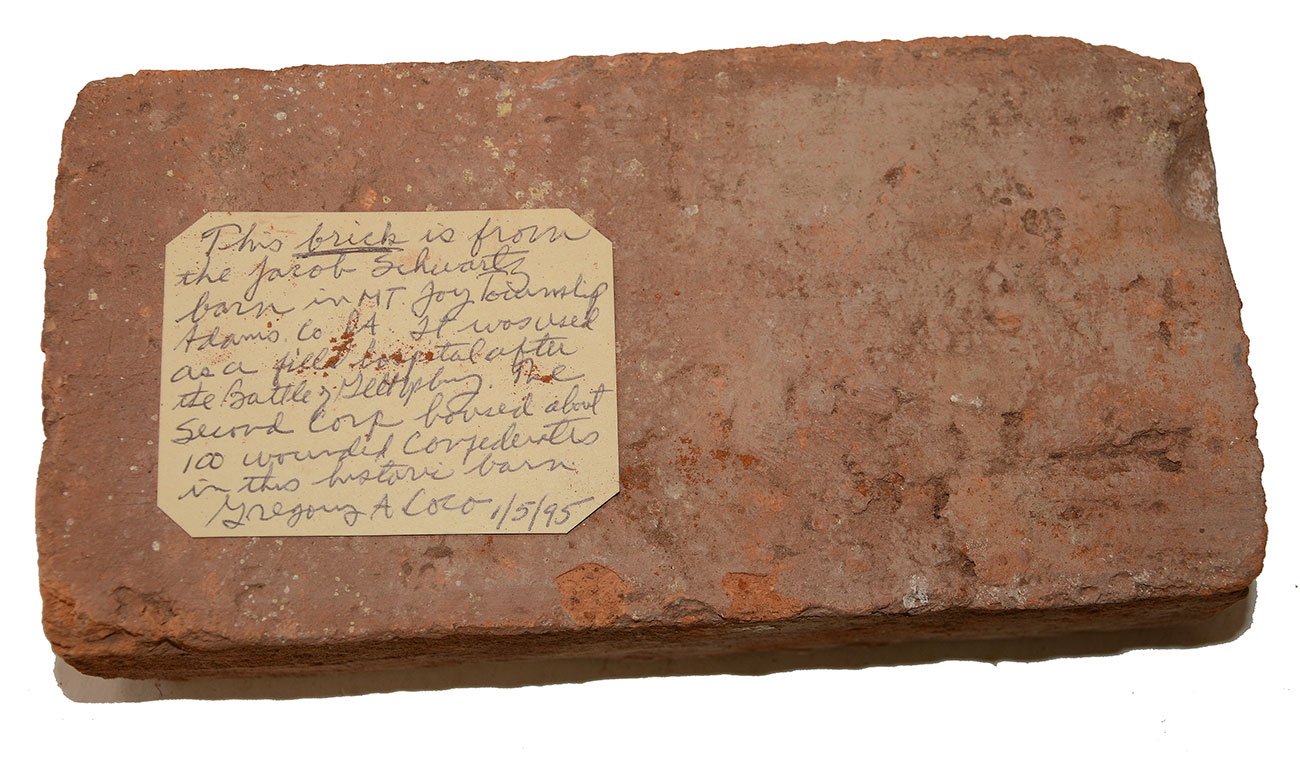 This brick is from
the Jacob Schwartz
barn in MT. Joy Township
Adams. Co. PA. It was used
as a field hospital after
the Battle of Gettysburg. The
Second Corp housed about
100 wounded Confederates
in this historic barn.
Gregory A Coco 1/5/95